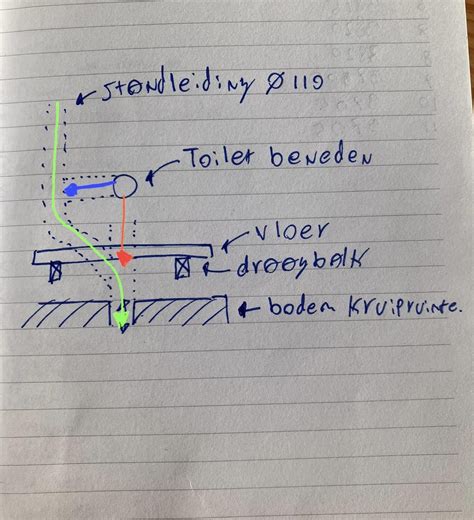 standleiding Ø 110
Toilet beneden
vloer
draagbalk
bodem kruipruimte.